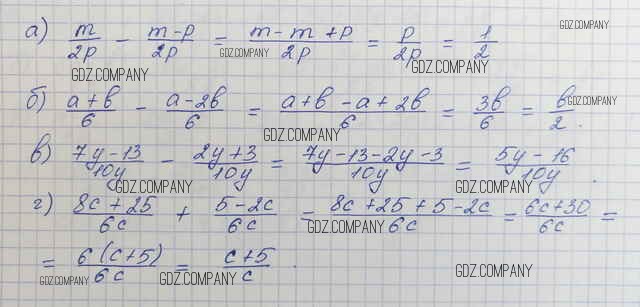 а) m/2p - m-p/2p = m-m+p/2p = p/2p = 1/2
GDZ.COMPANY
GDZ.COMPANY
GDZ.COMPANY
GDZ.COMPANY
б) a+b/6 - a-2b/6 = a+b-a+2b/6 = 3b/6 = b/2.
GDZ.COMPANY
GDZ.COMPANY
в) 7y-13/10y - 2y+3/10y = 7y-13-2y-3/10y = 5y-16/10y.
GDZ.COMPANY
GDZ.COMPANY
г) 8c+25/6c + 5-2c/6c = 8c+25+5-2c/6c = 6c+30/6c =
GDZ.COMPANY
= 6(c+5)/6c = c+5/c.
GDZ.COMPANY
GDZ.COMPANY
GDZ.COMPANY